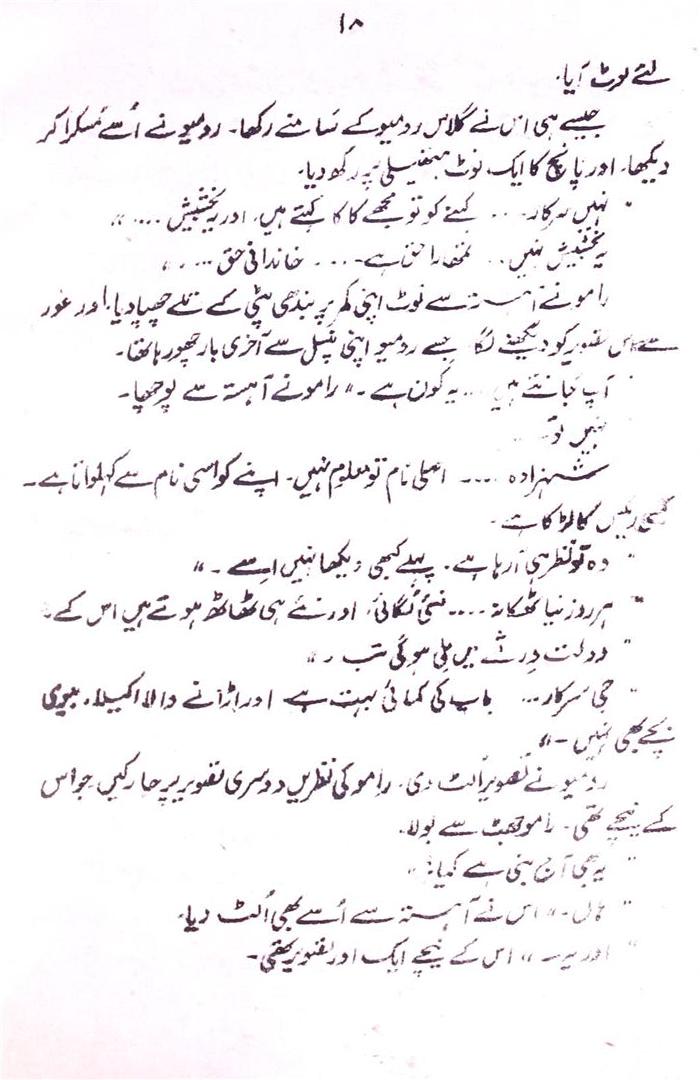 ۱۸
لئے لوٹ آیا۔
جیسے ہی اس نے گلاس رومیو کے سامنے رکھا۔ رومیو نے اُسے مُسکرا کر
دیکھا۔ اور پانچ کا ایک نوٹ ہتھیلی پر رکھ دیا۔
" نہیں سرکار ... کہنے کو تو مجھے کاکا کہتے ہیں، اور یہ بخشیش .... "
یہ بخشیش نہیں .. تمھارا حق ہے ... خاندانی حق ... "
رامو نے آہستہ سے نوٹ اپنی کمر پر بندھی پٹی کے تلے چھپا دیا۔ اور غور
سے اس تصویر کو دیکھنے لگا جسے رومیو اپنی پنسل سے آخری بار چھو رہا تھا۔
آپ جانتے ہیں ... یہ کون ہے ۔" رامو نے آہستہ سے پوچھا۔
نہیں تو ..
شہزادہ .... اصلی نام تو معلوم نہیں۔ اپنے کو اسی نام سے کہلواتا ہے۔
کسی رئیس کا لڑکا ہے۔
" وہ تو نظر ہی آ رہا ہے۔ پہلے کبھی دیکھا نہیں اسے ۔ "
" ہر روز نیا ٹھکانہ .... نئی لُگائی، اور نئے ہی ٹھاٹھ ہوتے ہیں اس کے۔
" دولت ورثے میں ملی ہو گی تب ۔ "
" جی سرکار ... باپ کی کمائی بہت ہے۔ اور اڑانے والا اکیلا۔ بیوی
بچے بھی نہیں ۔ "
رومیو نے تصویر اُلٹ دی۔ رامو کی نظریں دوسری تصویر پر جا رکیں جو اس
کے نیچے تھی۔ رامو جھٹ سے بولا۔
" یہ بھی آج بنی ہے کیا؟ "
" ہاں ۔" اس نے آہستہ سے اُسے بھی اُلٹ دیا۔
" اور یہ ۔" اس کے نیچے ایک اور تصویر تھی۔